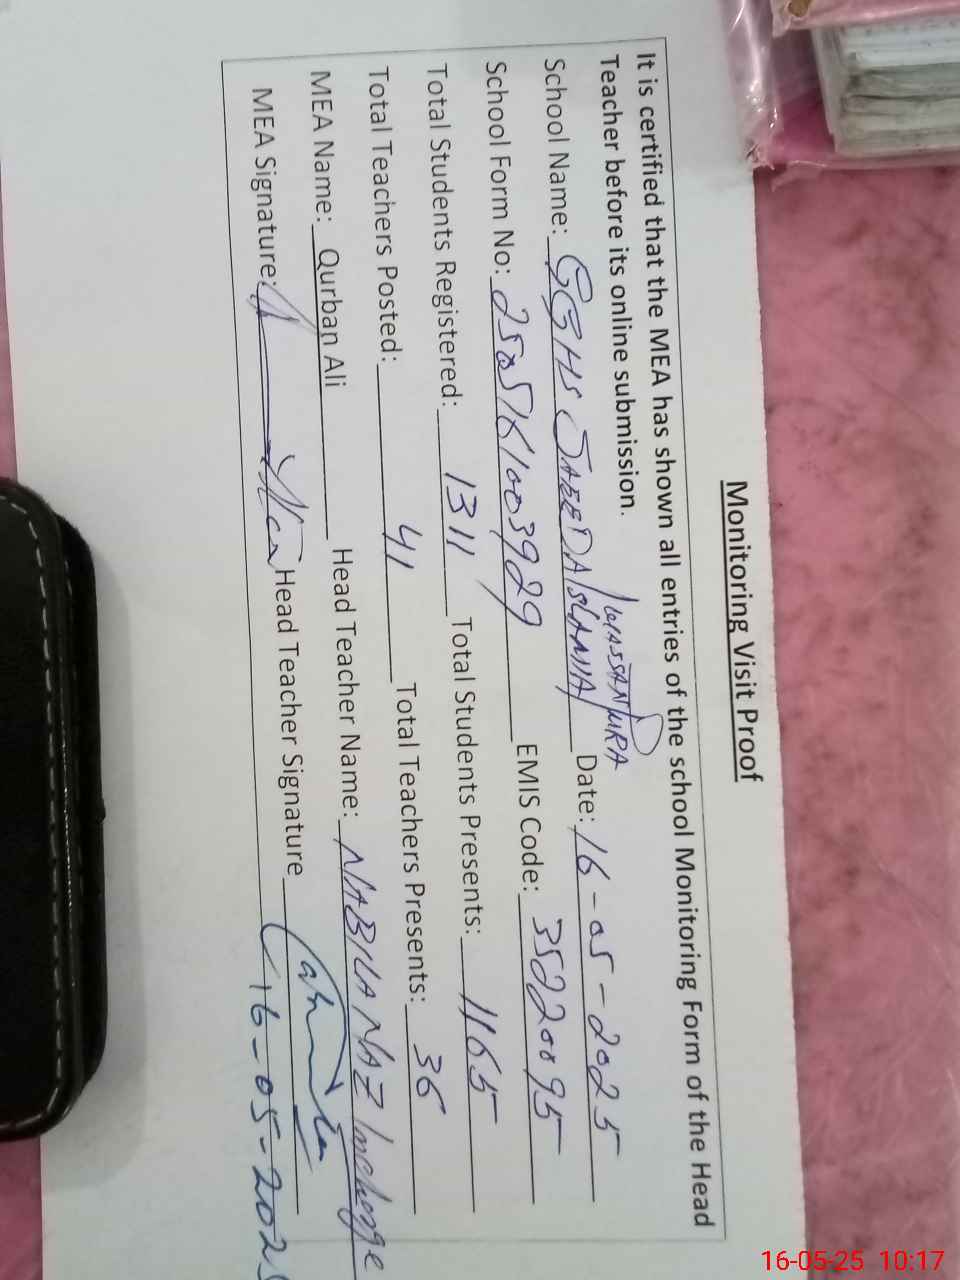 Monitoring Visit Proof
It is certified that the MEA has shown all entries of the school Monitoring Form of the Head
Teacher before its online submission.
School Name: GGHS JADEED ISLAMIA / HASSAN PURA Date: 16-05-2025
School Form No: 2505K1003929 EMIS Code: 35220095
Total Students Registered: 1311 Total Students Presents: 1165
Total Teachers Posted: 41 Total Teachers Presents: 36
MEA Name: Qurban Ali Head Teacher Name: NABILA NAZ Incharge
MEA Signature: Head Teacher Signature
16-05-2025
16-05-25 10:17